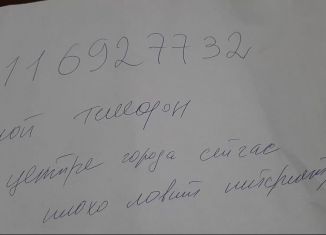 116927732
мой телефон
центре города сейчас
плохо ловит интернет